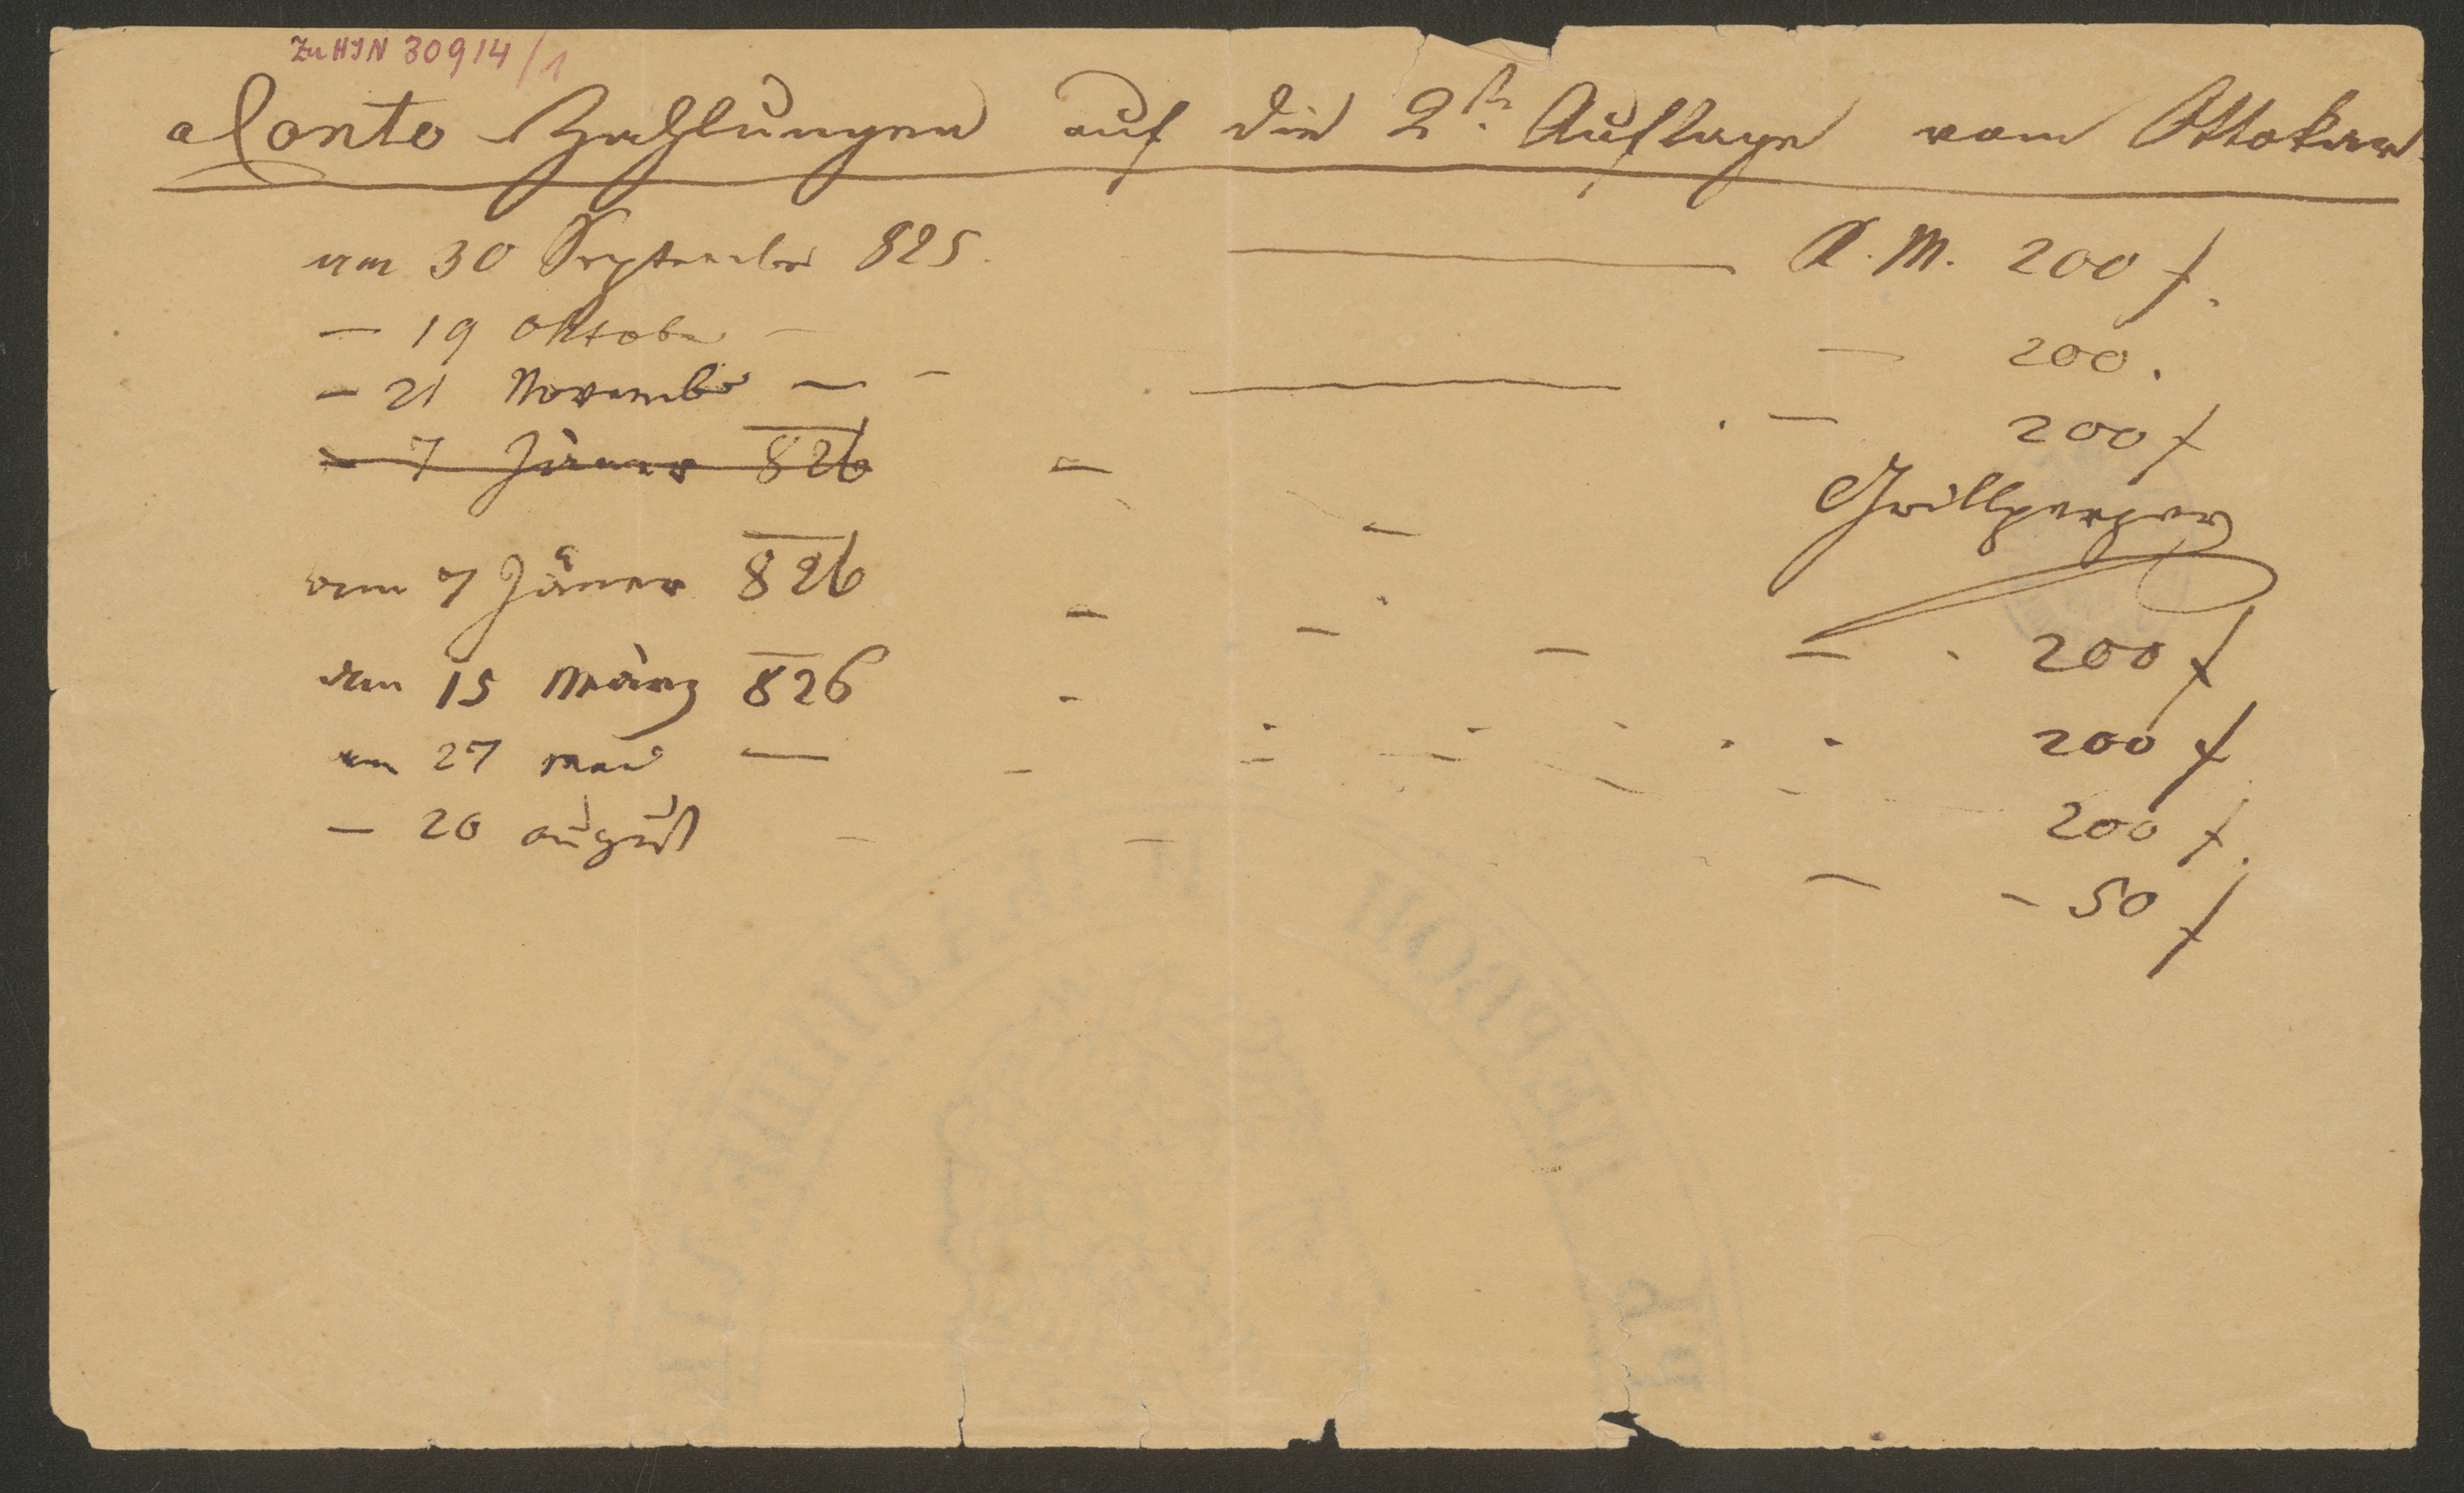 Zu HIN 30914/1
a Conto Zahlungen auf die 2te Auflage vom Ottokar
am 30 September 825. — K. M. 200 f.
— 19 Oktober — — 200.
— 21 November — — — — 200 f
— 7 Jäner 826 —
Grillparzer
am 7 Jäner 826 — — — — 200 f
am 15 März 826 - - - - - - 200 f
am 27 Mai — - - - - - 200 f.
— 20 august - - — - 50 f